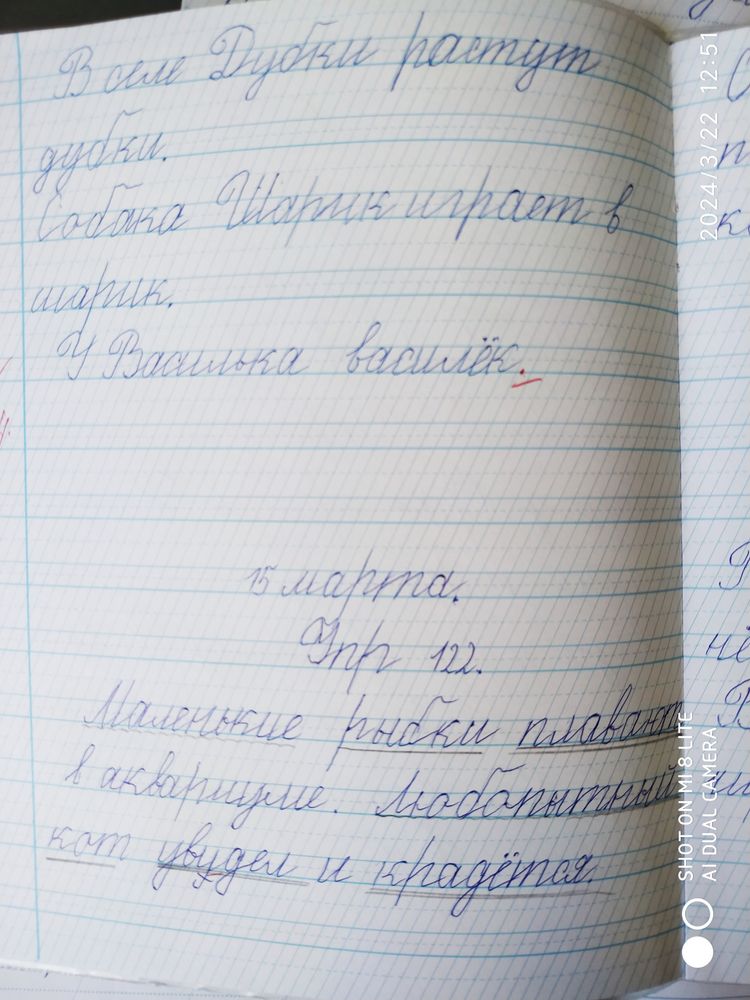 В селе Дубки растут
дубки.
Собака Шарик играет в
шарик.
У Василька василёк.
15 марта.
Упр 122.
Маленькие рыбки плавают
в аквариуме. Любопытный
кот увидел и крадётся.
2024/3/22 12:51
SHOT ON MI 8 LITE
AI DUAL CAMERA